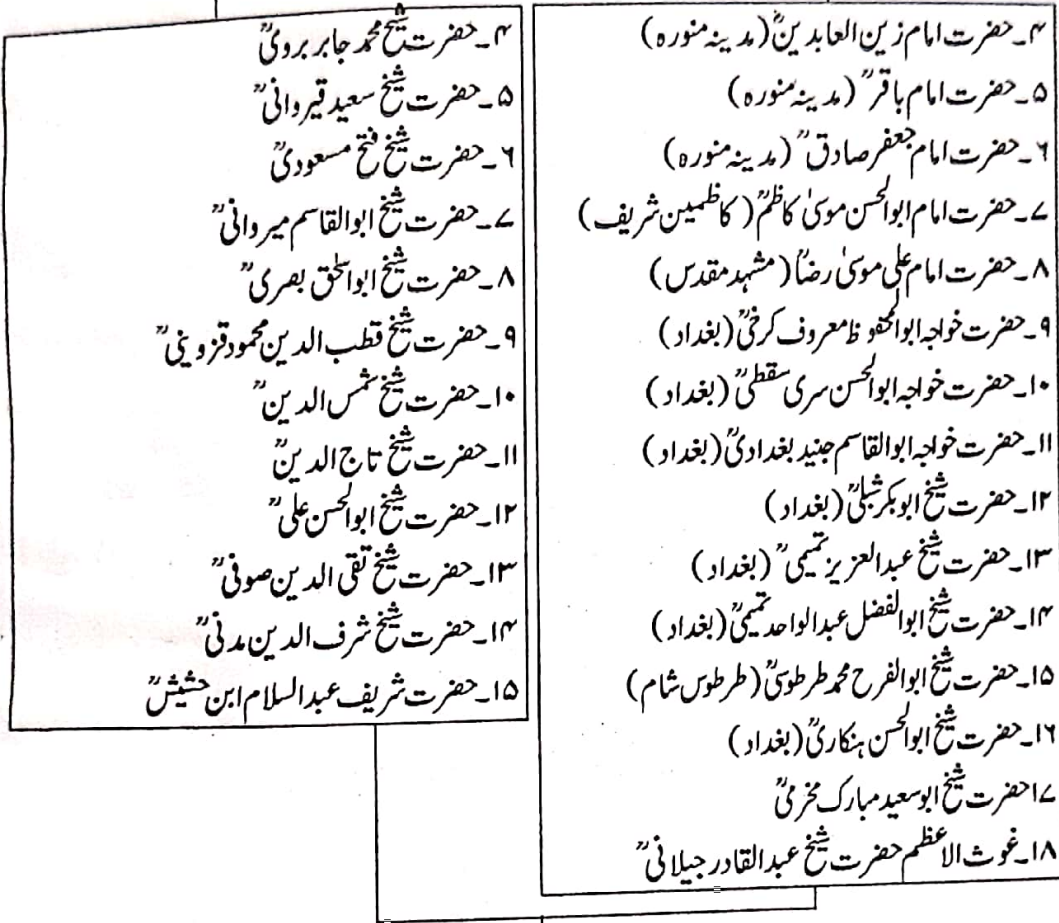 ۴۔حضرت امام زین العابدینؓ (مدینہ منورہ)
۵۔حضرت امام باقرؒ (مدینہ منورہ)
۶۔حضرت امام جعفر صادقؒ (مدینہ منورہ)
۷۔حضرت امام ابوالحسن موسیٰ کاظمؒ (کاظمین شریف)
۸۔حضرت امام علی موسیٰ رضاؒ (مشہد مقدس)
۹۔حضرت خواجہ ابوالمحفوظ معروف کرخیؒ (بغداد)
۱۰۔حضرت خواجہ ابوالحسن سری سقطیؒ (بغداد)
۱۱۔حضرت خواجہ ابوالقاسم جنید بغدادیؒ (بغداد)
۱۲۔حضرت شیخ ابوبکر شبلیؒ (بغداد)
۱۳۔حضرت شیخ عبدالعزیز تمیمیؒ (بغداد)
۱۴۔حضرت شیخ ابوالفضل عبدالواحد تمیمیؒ (بغداد)
۱۵۔حضرت شیخ ابوالفرح محمد طرطوسیؒ (طرطوس شام)
۱۶۔حضرت شیخ ابوالحسن ہنکاریؒ (بغداد)
۱۷حضرت شیخ ابوسعید مبارک مخرمیؒ
۱۸۔غوث الاعظم حضرت شیخ عبدالقادر جیلانیؒ
۴۔حضرت شیخ محمد جابر برویؒ
۵۔حضرت شیخ سعید قیروانیؒ
۶۔حضرت شیخ فتح مسعودیؒ
۷۔حضرت شیخ ابوالقاسم میروانیؒ
۸۔حضرت شیخ ابوالحق بصریؒ
۹۔حضرت شیخ قطب الدین محمود قزوینیؒ
۱۰۔حضرت شیخ شمس الدینؒ
۱۱۔حضرت شیخ تاج الدینؒ
۱۲۔حضرت شیخ ابوالحسن علیؒ
۱۳۔حضرت شیخ تقی الدین صوفیؒ
۱۴۔حضرت شیخ شرف الدین مدنیؒ
۱۵۔حضرت شریف عبدالسلام ابن حشیشؒ